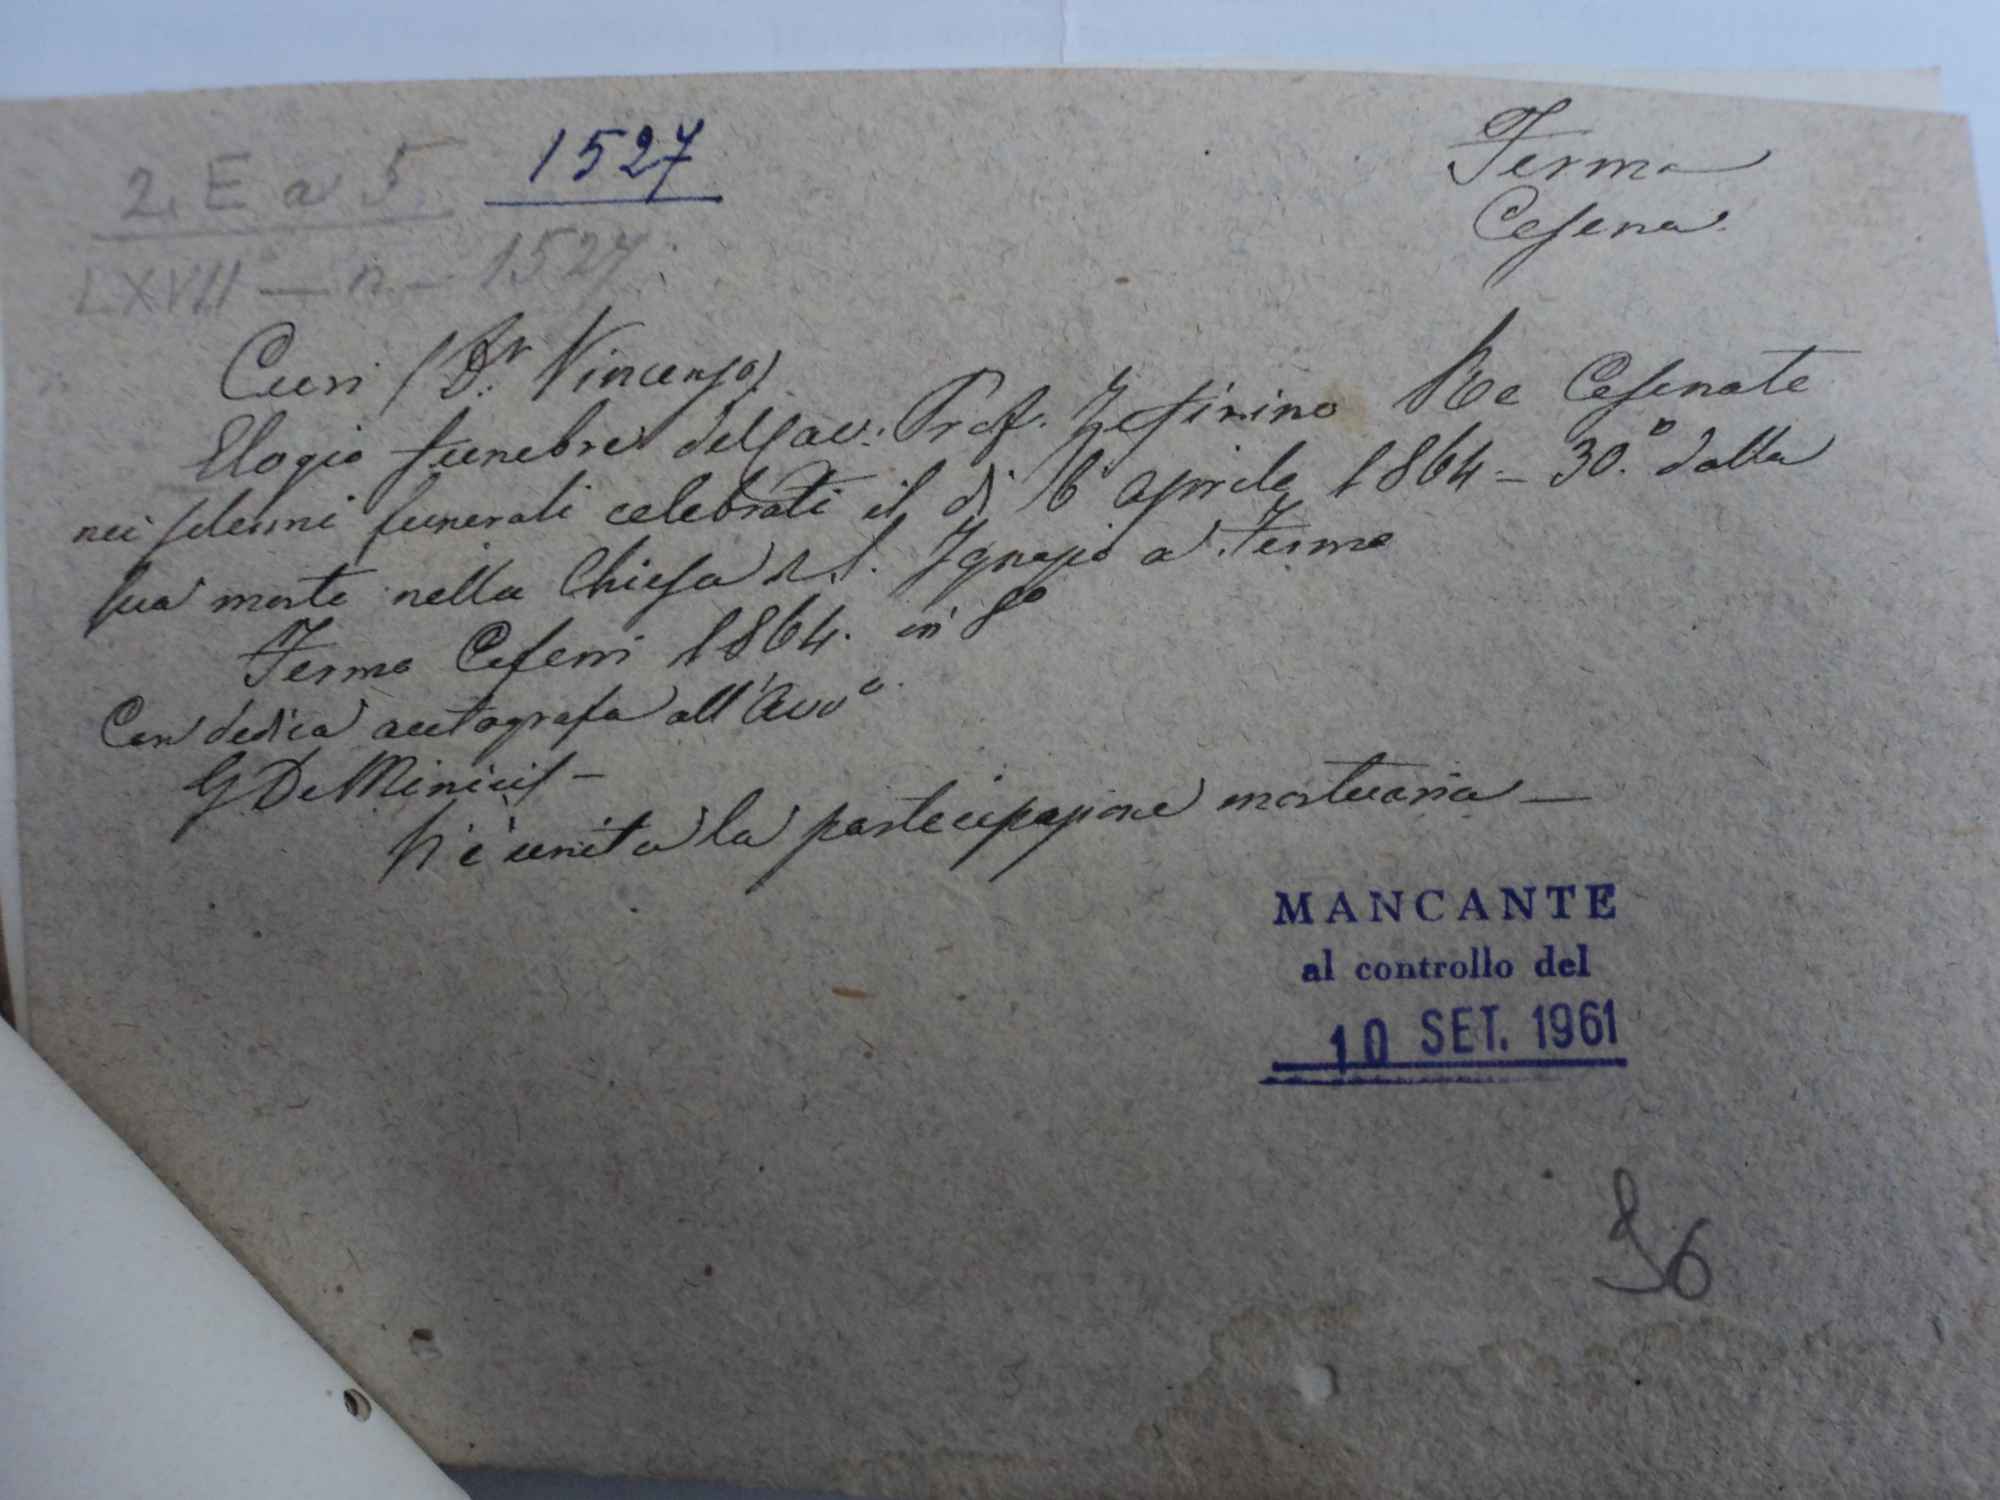 2. E a 5 1527
LXVII — n. — 1527
Fermo
Cesena
Curi (Dr. Vincenzo)
Elogio funebre del Cav: Prof. Zefirino Re Cesenate
nei solenni funerali celebrati il dì 6 aprile 1864 – 30.° dalla
sua morte nella Chiesa di S. Ignazio a Fermo
Fermo 1864. in 8°
Con dedica autografa all'Avv°.
G De Minicis –
Vi è unita la partecipazione mortuaria —
MANCANTE
al controllo del
10 SET. 1961